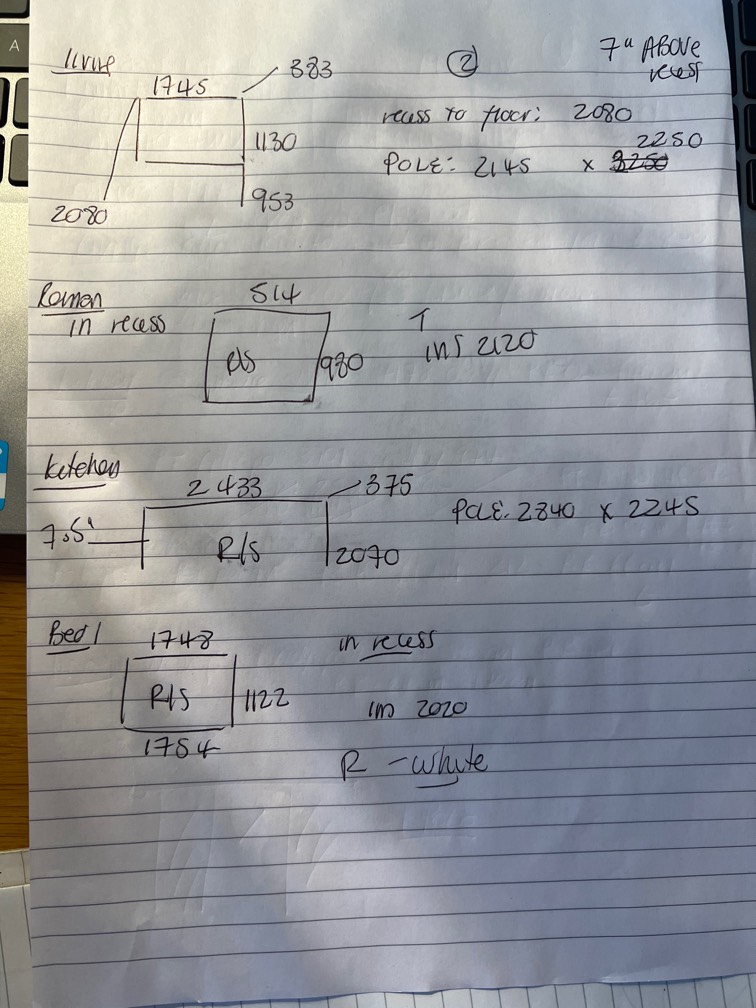 A
② 7" ABOVE
recess
living
1745 383
recess to floor: 2080
1130 2250
POLE: 2145 x 3250
953
2080
Roman 514
in recess
R/S 980 int 2120
Kitchen
2433 375
POLE: 2840 x 2245
7.5"
R/S 2070
Bed 1 1748 in recess
R/S 1122 2020
1754
R - whyte